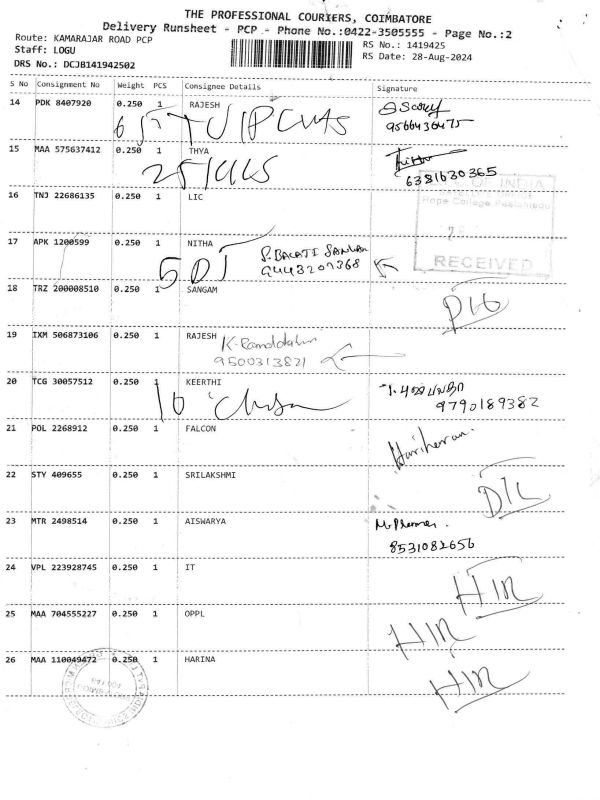 THE PROFESSIONAL COURIERS, COIMBATORE
Delivery Runsheet - PCP - Phone No.:0422-3505555 - Page No.:2
Route: KAMARAJAR ROAD PCP
RS No.: 1419425
Staff: LOGU
RS Date: 28-Aug-2024
DRS No.: DCJB141942502
S No Consignment No Weight PCS Consignee Details Signature
14 PDK 8407920 0.250 1 RAJESH
9566436475
15 MAA 575637412 0.250 1 THYA
6381630365
16 TNJ 22686135 0.250 1 LIC
OF INDIA
Hope College Peelamedu
RECEIVED
17 APK 1200599 0.250 1 NITHA
S. BALATI SANKAR
9443207368
18 TRZ 200008510 0.250 1 SANGAM
19 IXM 506873106 0.250 1 RAJESH
9500313821
20 TCG 30057512 0.250 1 KEERTHI
10
9790189382
21 POL 2268912 0.250 1 FALCON
Hariharan.
22 STY 409655 0.250 1 SRILAKSHMI
DIL
23 MTR 2498514 0.250 1 AISWARYA
8531082656
24 VPL 223928745 0.250 1 IT
HIR
25 MAA 704555227 0.250 1 OPPL
HIR
26 MAA 110049472 0.250 1 HARINA
HIR